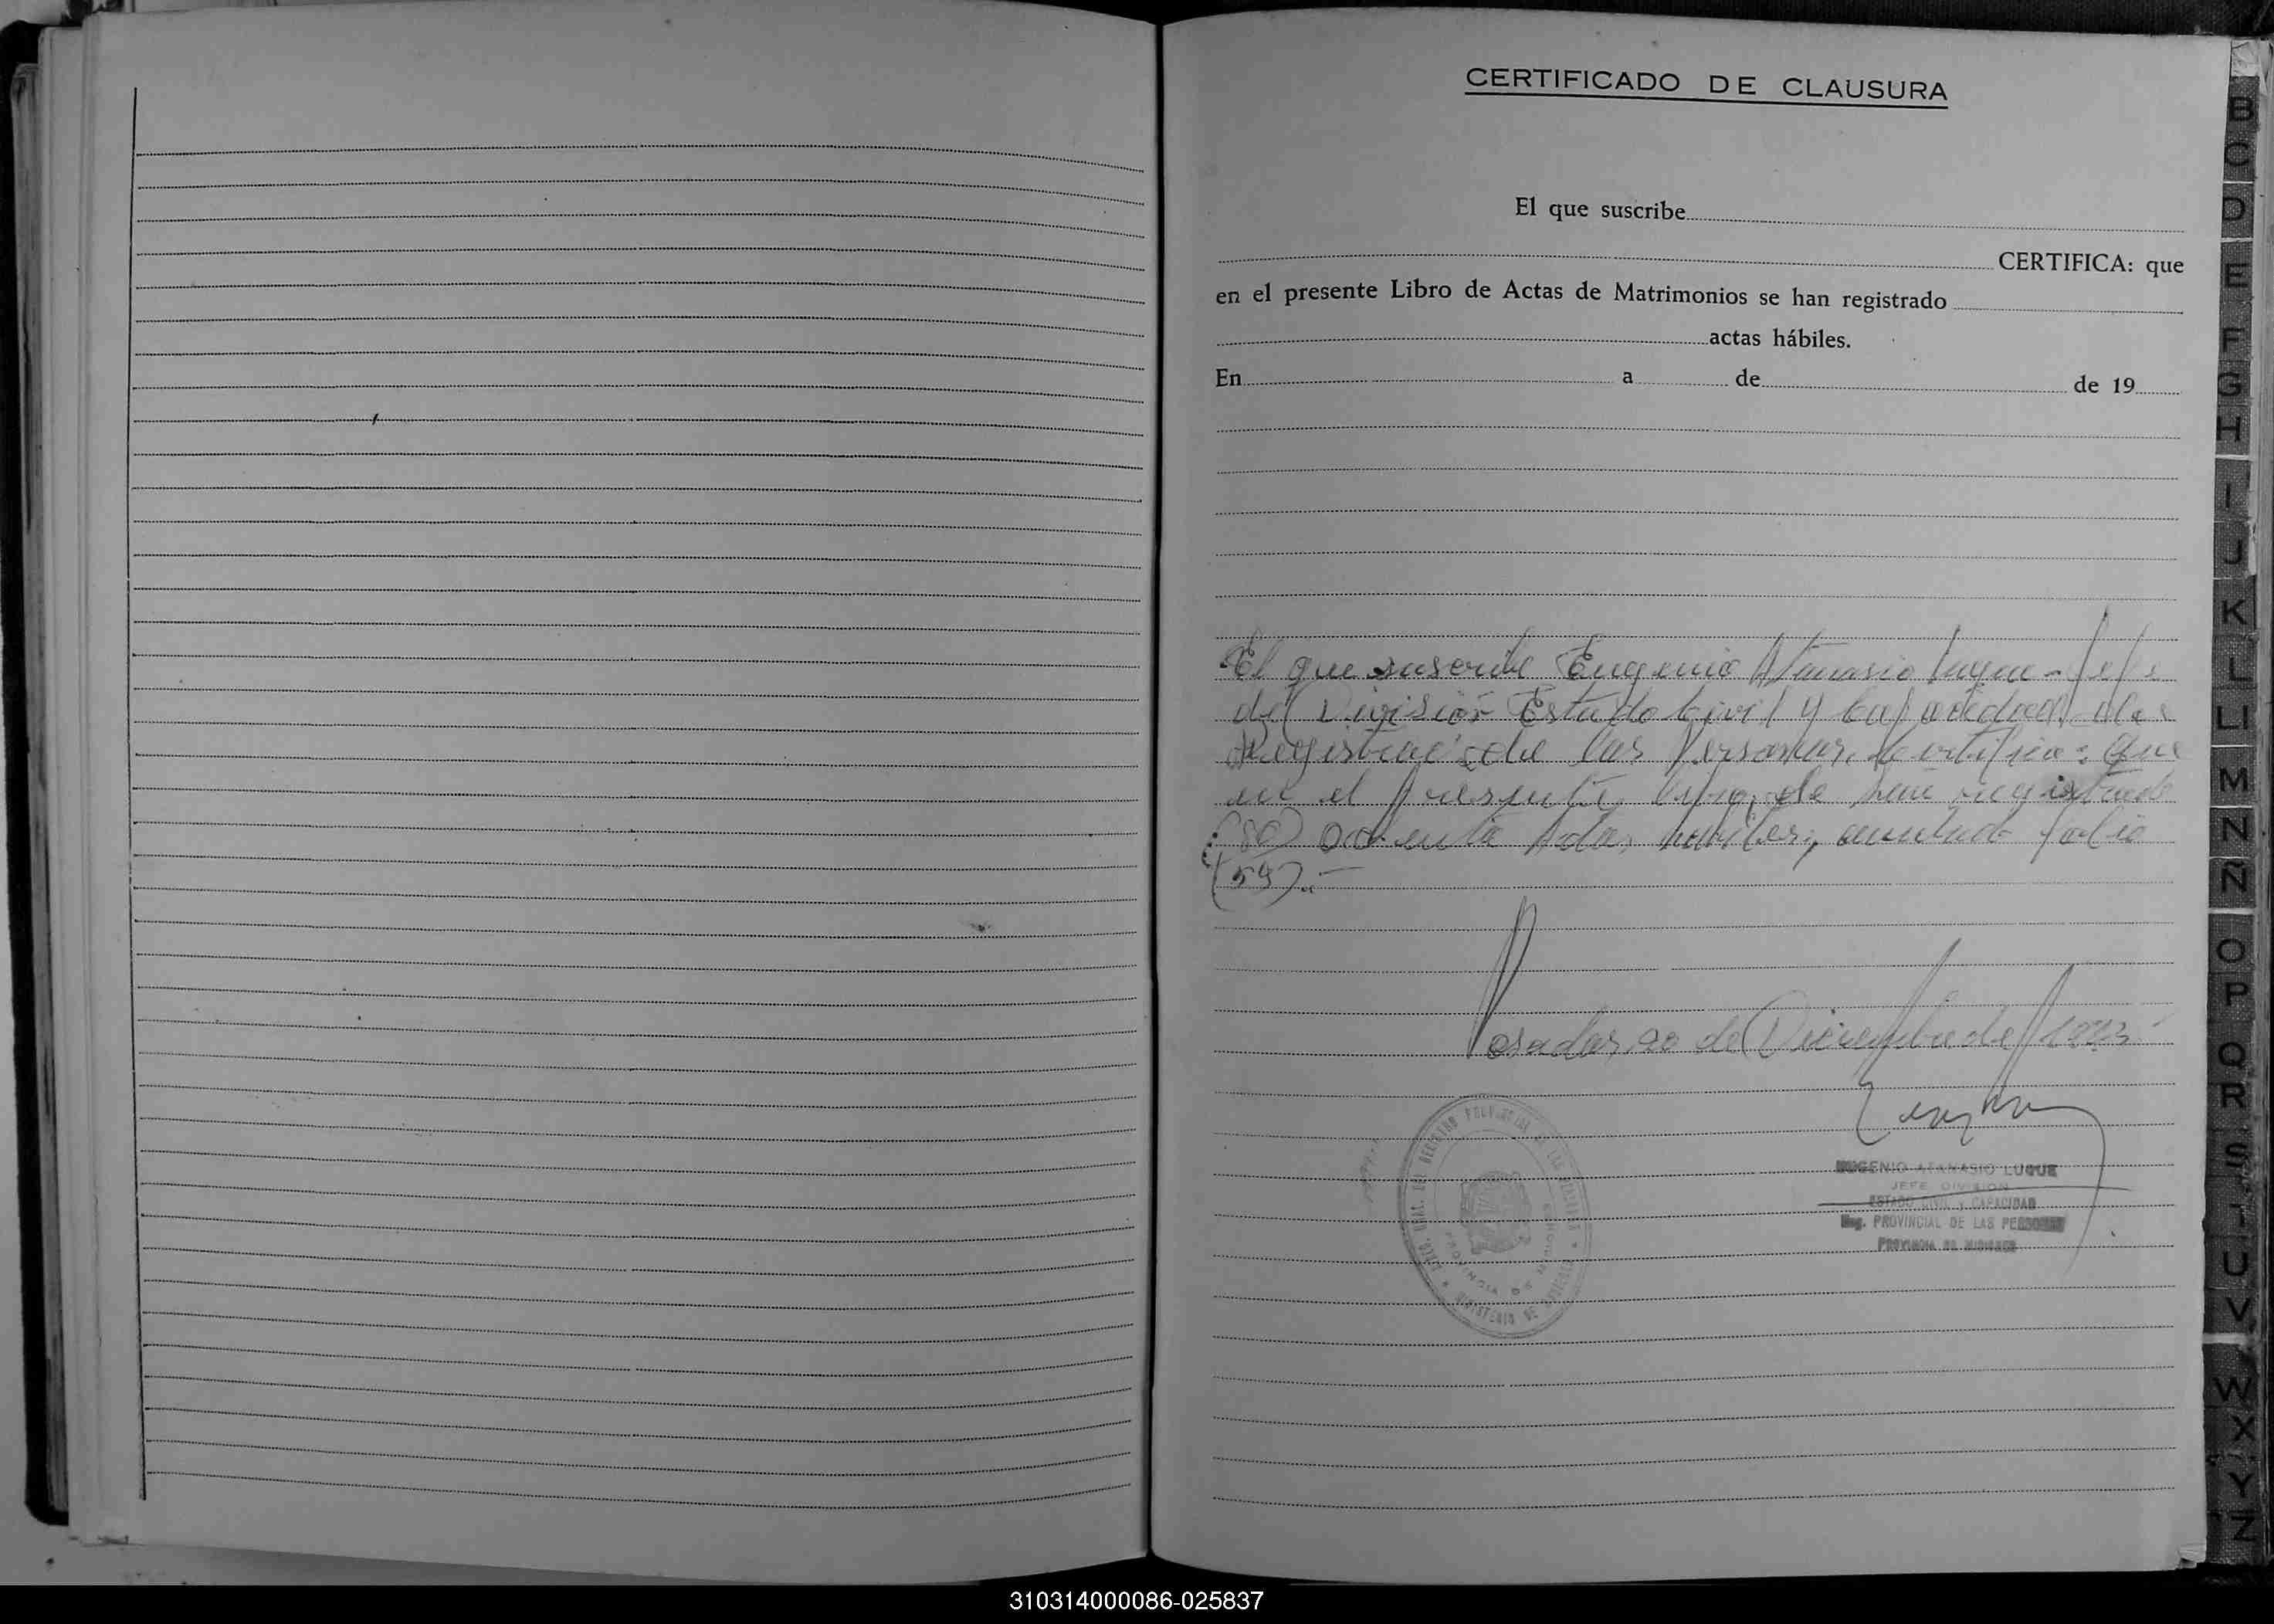 CERTIFICADO DE CLAUSURA
El que suscribe
CERTIFICA: que
en el presente Libro de Actas de Matrimonios se han registrado
actas hábiles.
En a de de 19
El que suscribe Eugenio Atanasio Luque - Jefe
del División Estado Civil y Capacidad
de las Personas, Certifica: Que
en el presente libro, se han registrado
(80) Ochenta Actas habiles, folio
(59).-
Posadas, 20 de Diciembre de
EUGENIO ATANASIO LUQUE
JEFE DIVISION
ESTADO CIVIL Y CAPACIDAD
Reg. PROVINCIAL DE LAS PERSONAS
PROVINCIA DE MISIONES
PROVINCIA DE MISIONES
MINISTERIO DE
B
C
D
E
F
G
H
I
J
K
L
LI
M
N
Ñ
O
P
Q
R
S
T
U
V
W
X
Y
Z
310314000086-025837